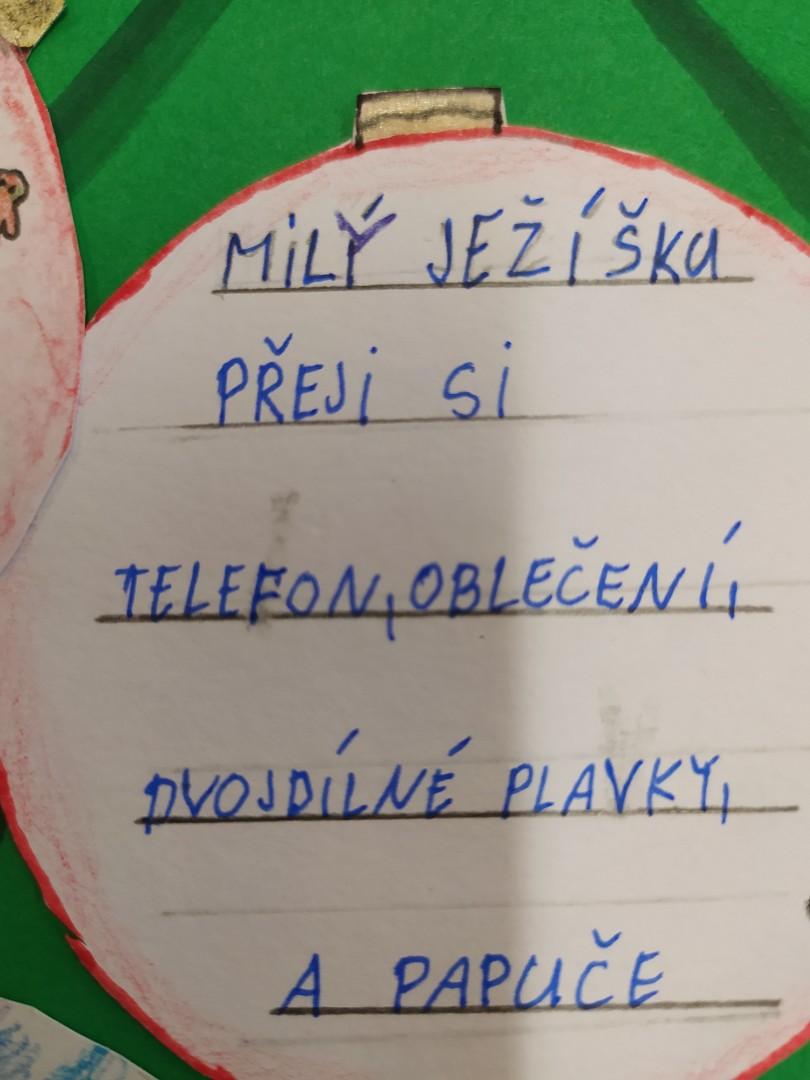 MILÝ JEŽÍŠKU
PŘEJI SI
TELEFON, OBLEČENÍ,
DVOJDÍLNÉ PLAVKY,
A PAPUČE